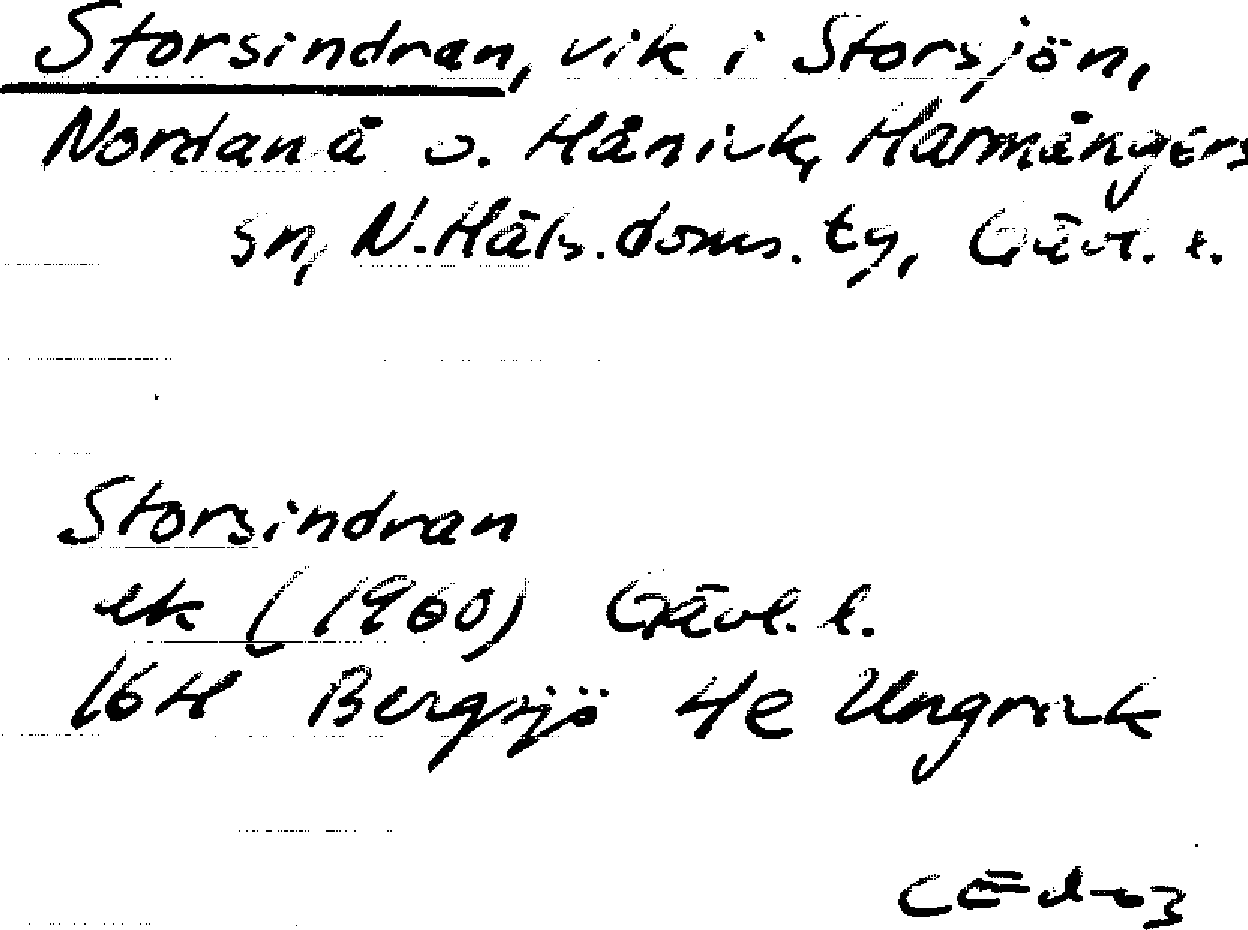 Storsindran, vik i Storsjön,
Nordanå o. Hånick, Harmångers
sn, N. Häls. doms. tg, Gävl. l.
Storsindran
ek (1960) Gävl. l.
16H Bergsjö 4e Ungrvik